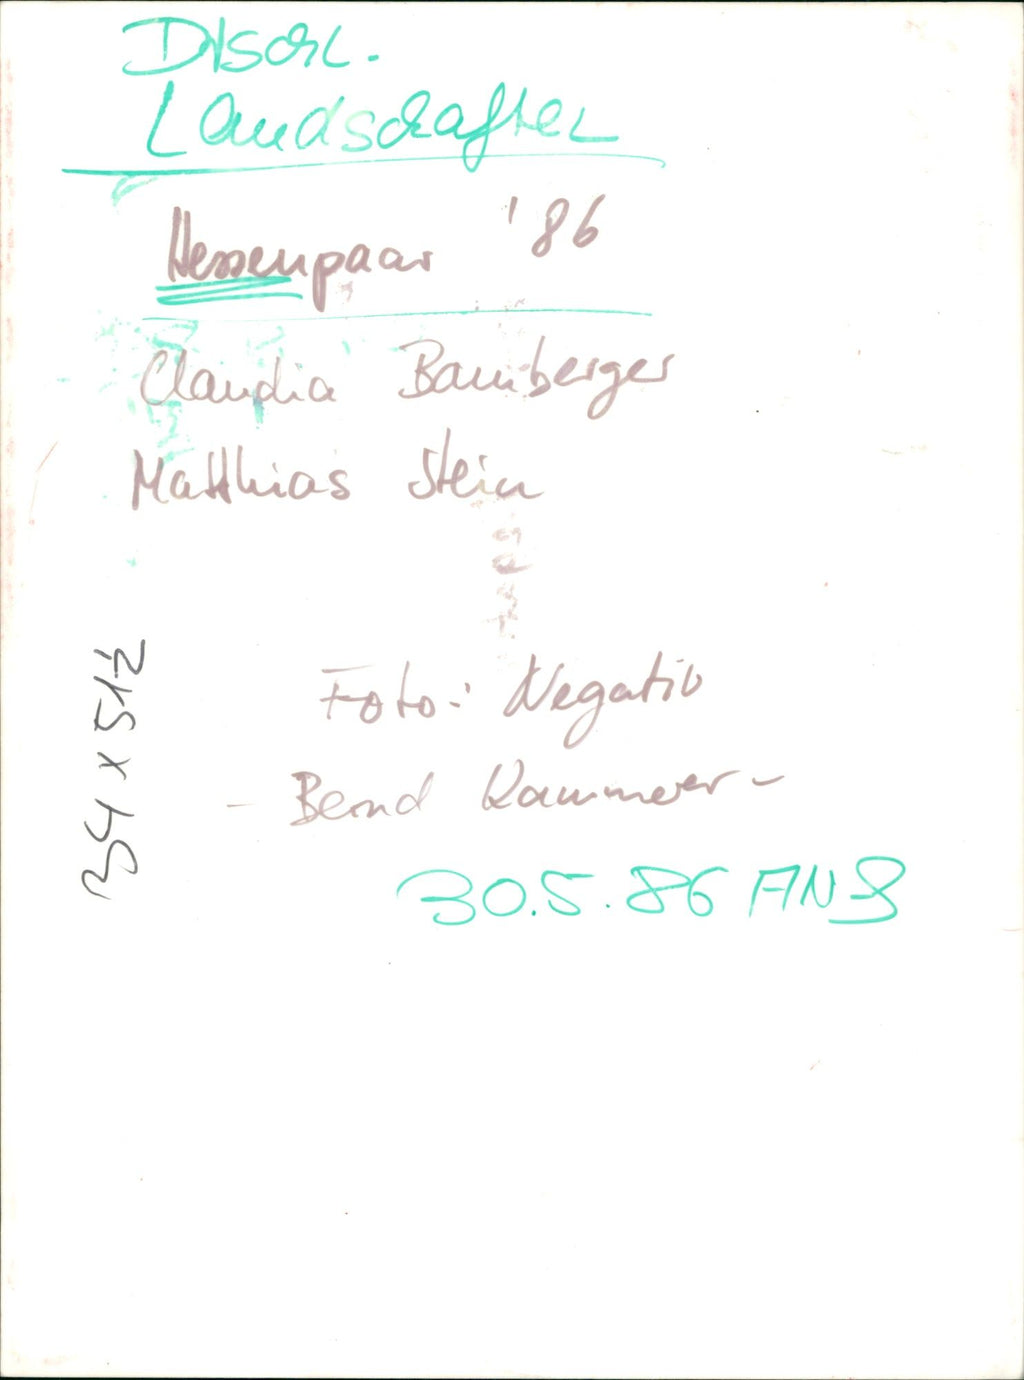 Dtschl.
Landschaften
Hessenpaar '86
Claudia Bamberger
Matthias Stein
Foto: Negativ
- Bernd Kammerer -
30.5.86
34 x 51½